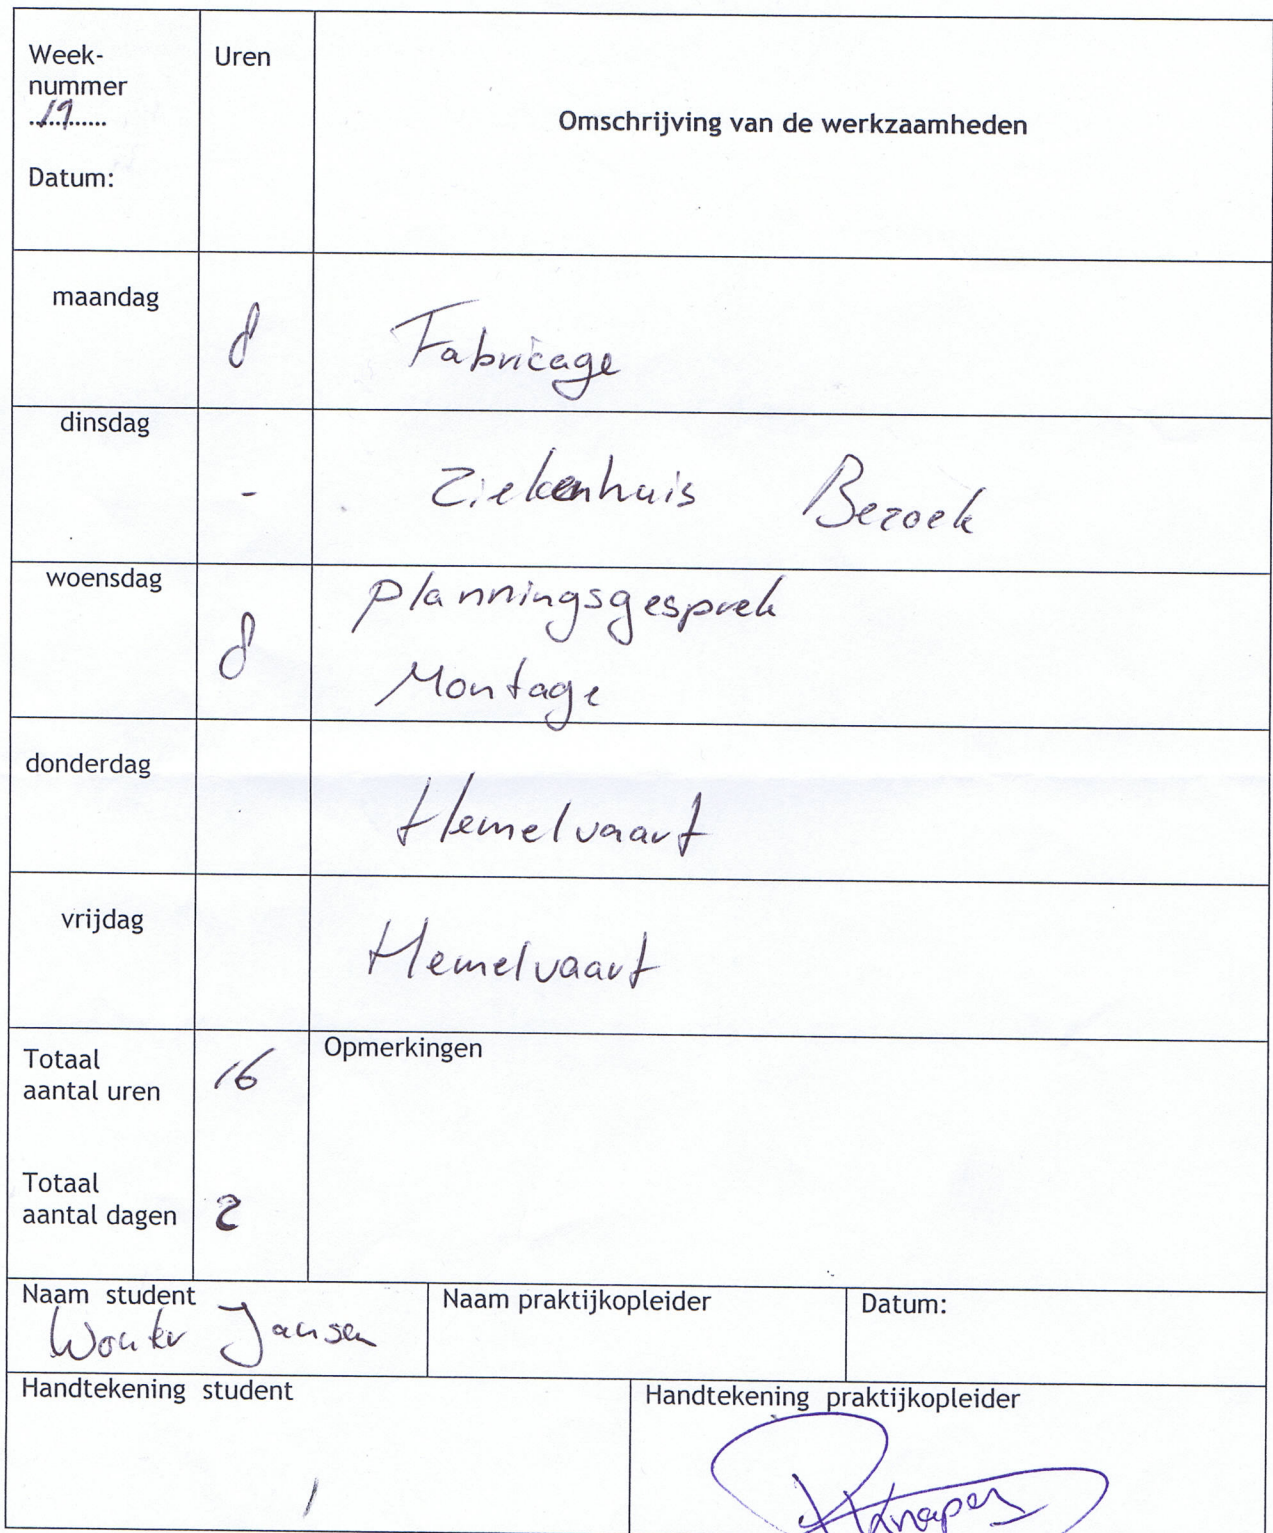 Week-
nummer
19
Datum:
Uren
Omschrijving van de werkzaamheden
maandag
8
Fabricage
dinsdag
-
Ziekenhuis Bezoek
woensdag
8
planningsgesprek
Montage
donderdag
Hemelvaart
vrijdag
Hemelvaart
Totaal
aantal uren
16
Opmerkingen
Totaal
aantal dagen
2
Naam student
Wouter Jansen
Naam praktijkopleider
Datum:
Handtekening student
Handtekening praktijkopleider